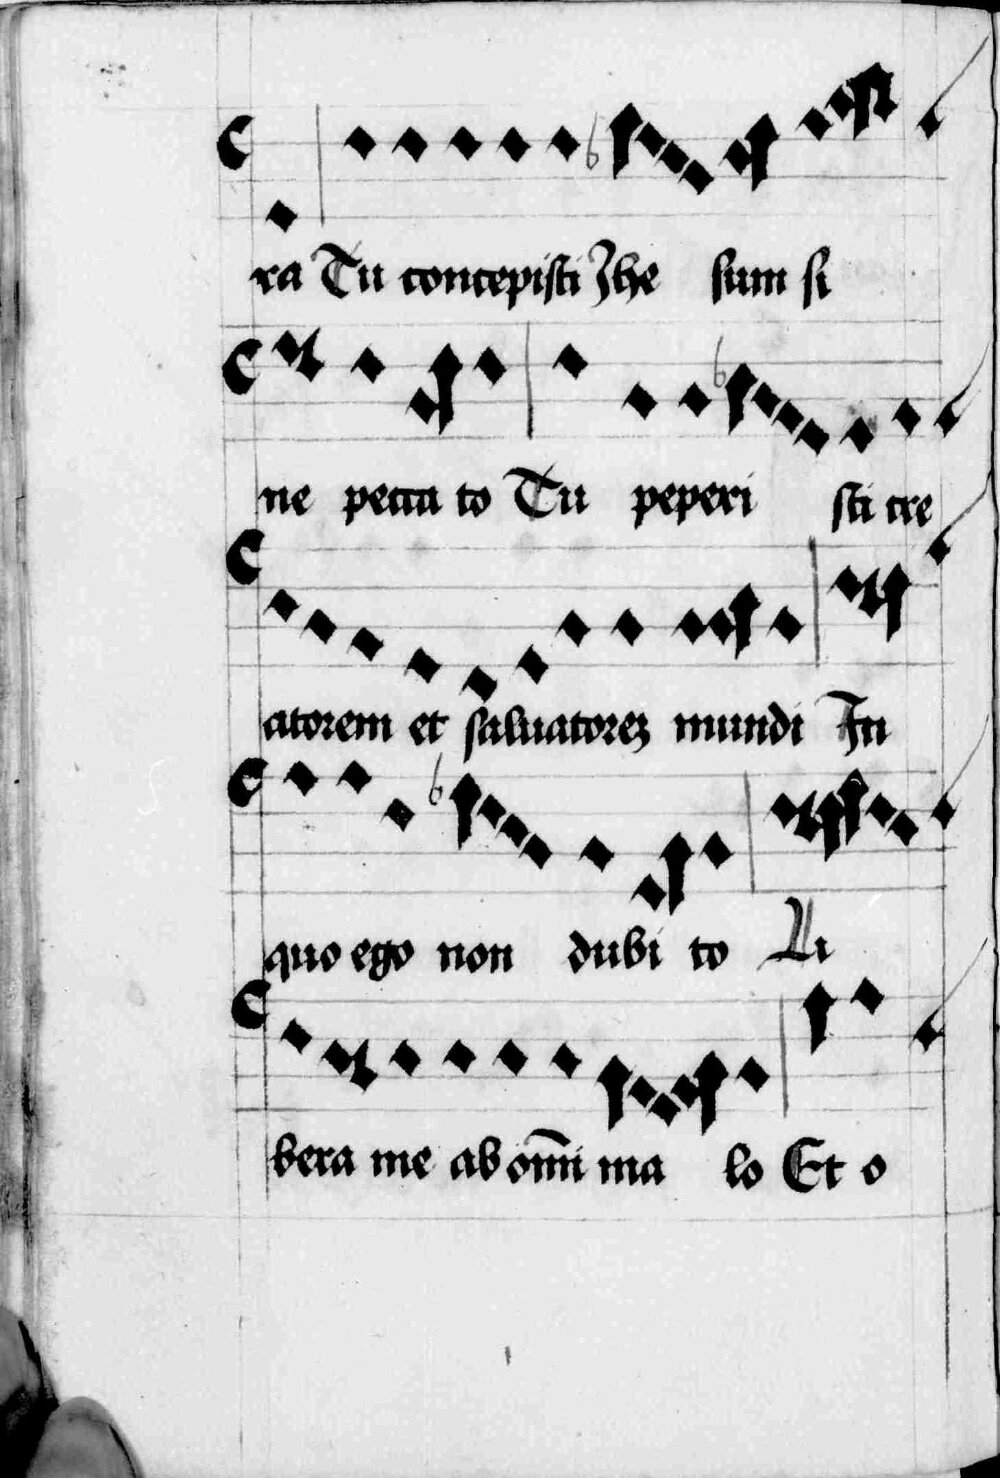 ra Tu concepisti Jhe sum si
ne pecca to Tu peperi sti cre
atorem et saluatorez mundi In
quo ego non dubi to Li
bera me ab om̅i ma lo Et o